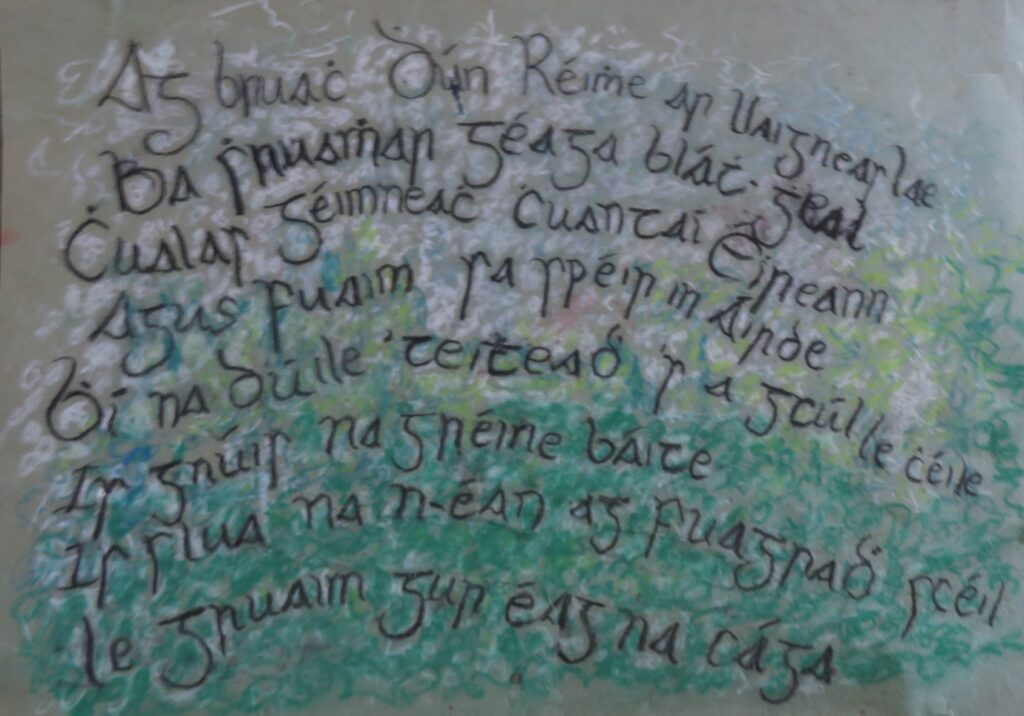 Ag bruaċ Dún Réiṁe ar Uaigneas lae
Ba snuaṁar géaga bláṫ-geal
Ċualas géimneaċ ċuantaí Éireann
Agus fuaim sa spéir in áirde
Bí na dúile 'teiṫeaḋ 's a gcúl le ċéile
Is gnúis na gréine báite
Is slua na n-éan ag fuagraḋ scéil
le gruaim gur éag na cága